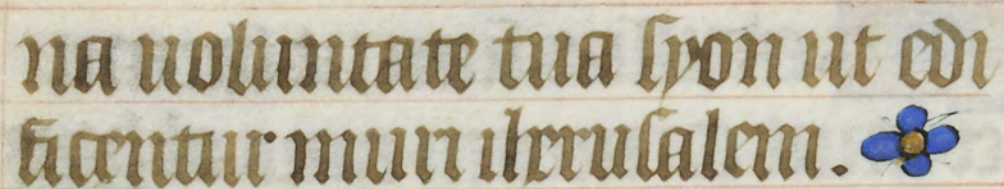 na uoluntate tua syon ut edi
ficentur muri iherusalem.